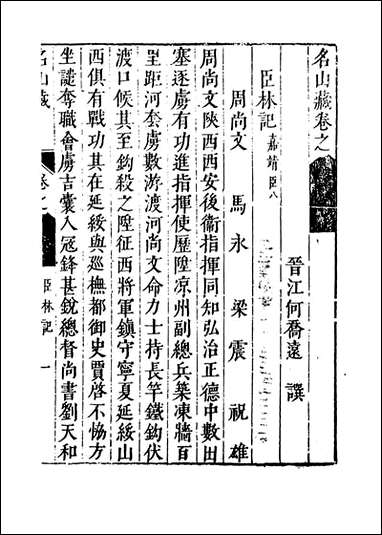 名山藏卷之
晉江何喬遠 譔
臣林記 嘉靖臣八
周尚文 馬永 梁震 祝雄
周尚文陝西西安後衞指揮同知弘治正德中數出
塞逐虜有功進指揮使歷陞凉州副總兵築凍牆百
里距河套虜數游渡河尚文命力士持長竿鐵鈎伏
渡口候其至鈎殺之陞征西將軍鎮守寧夏延綏山
西俱有戰功其在延綏與巡撫都御史賈啓不恊方
坐譴奪職會虜吉囊入冦鋒甚銳總督尚書劉天和
名山藏 卷之 臣林記 一